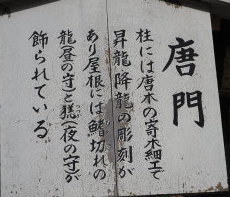 唐門
柱には唐木の寄木細工で
昇龍降龍の彫刻が
あり屋根には鰭切れの
龍(昼の守)と(夜の守)が
飾られている